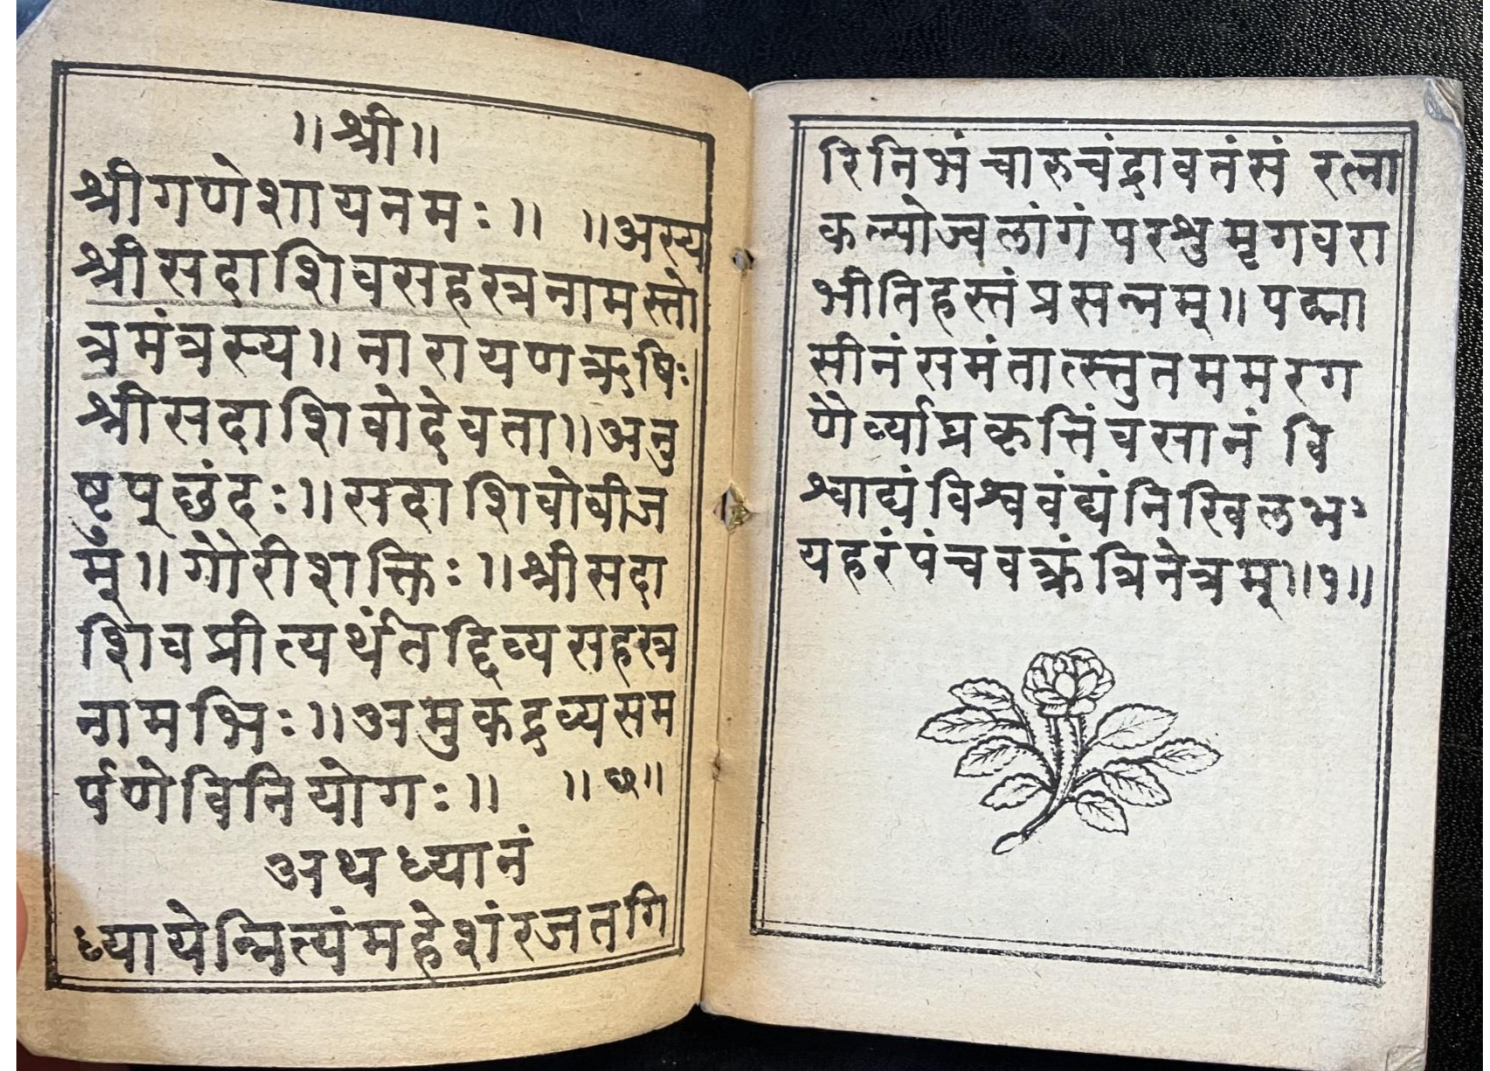 ॥श्री॥
श्रीगणेशायनमः॥ ॥अस्य
श्रीसदाशिवसहस्त्रनामस्तो
त्रमंत्रस्य॥नारायणऋषिः
श्रीसदाशिवोदेवता॥अनु
ष्टपूछंदः॥सदाशिवोबीज
मूं॥गोरीशक्तिः॥श्रीसदा
शिवप्रीत्यर्थंतद्दिव्यसहस्त्र
नामभिः॥अमुकद्रव्यसम
र्पणेविनियोगः॥ ॥ ॥
अथध्यानं
ध्यायेन्नित्यंमहेशंरजतगि
रिनिभंचारुचंद्रावतंसं रत्ना
कल्पोज्वलांगं परशुमृगवरा
भीतिहस्तंप्रसन्नम्॥पद्मा
सीनंसमंतात्स्तुतममरग
णैर्व्याघ्रकृत्तिंवसानं वि
श्वाद्यंविश्ववंद्यंनिखिलभ
यहरंपंचवक्त्रंत्रिनेत्रम्॥१॥